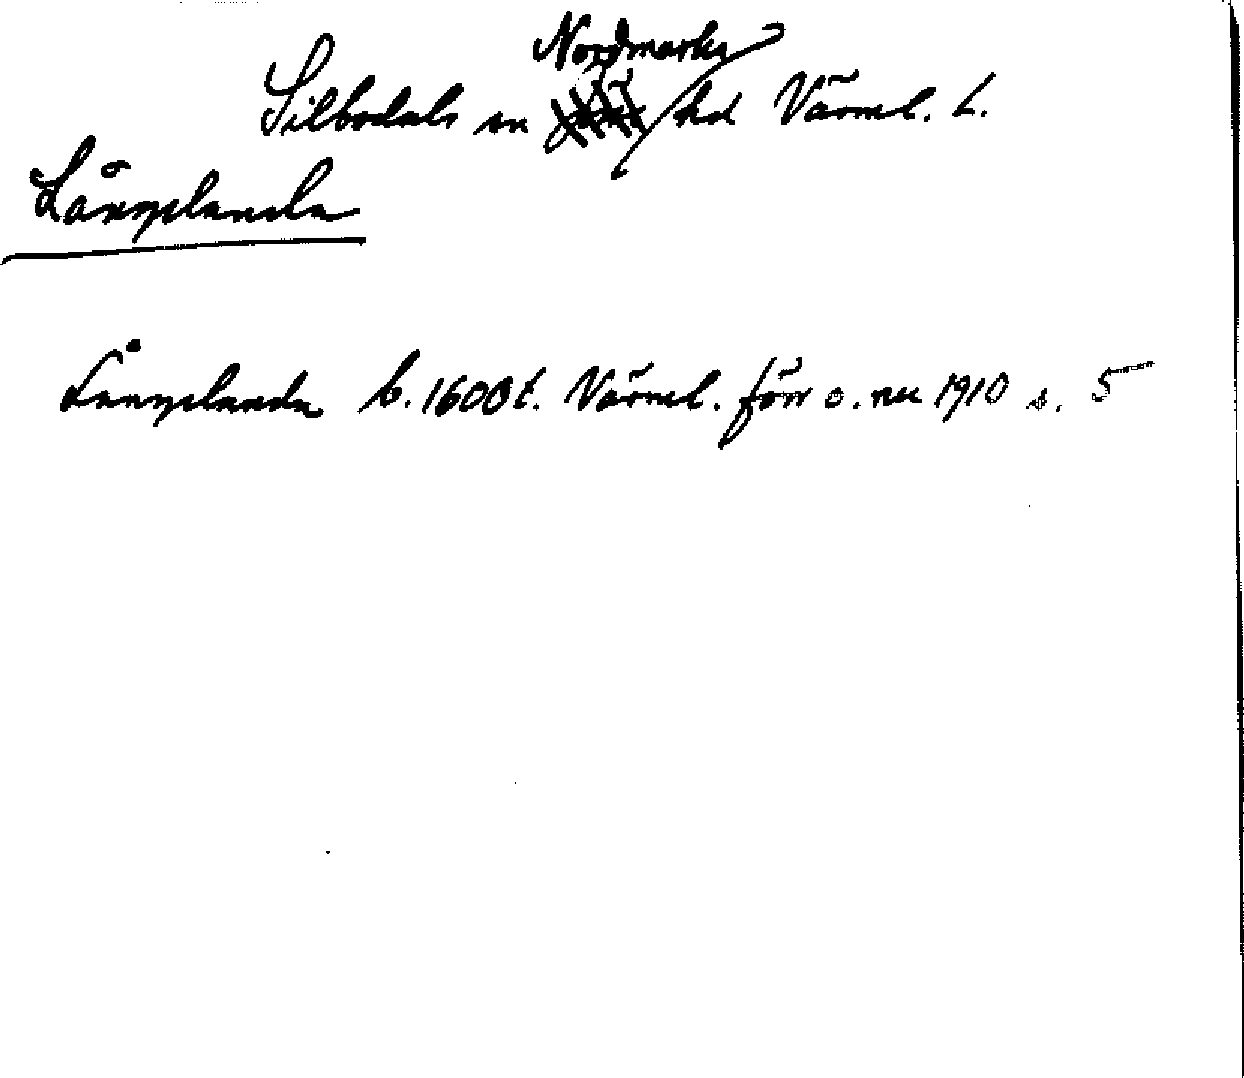 Nordmarks
Silbodals sn hd Värml. L.
Långelanda
Långelanda b. 1600t. Värml. förr o. nu 1910 s. 5